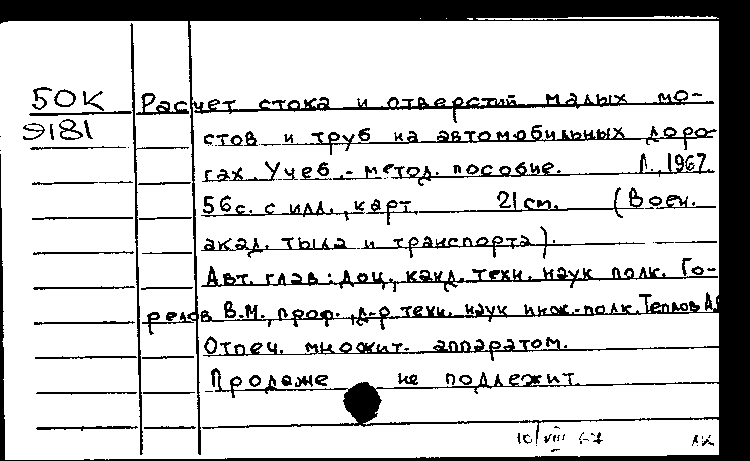 50К Расчет стока и отверстий малых мо-
9181 стов и труб на автомобильных доро-
гах. Учеб.-метод. пособие. Л., 1967.
56с. с илл., карт. 21 см. (Воен.
акад. тыла и транспорта).
Авт. глав: доц., канд. техн. наук полк. Го-
релов В.М., проф., д-р техн. наук инж.-полк. Теплов А.
Отпеч. множит. аппаратом.
Продаже не подлежит.
10/VIII 67